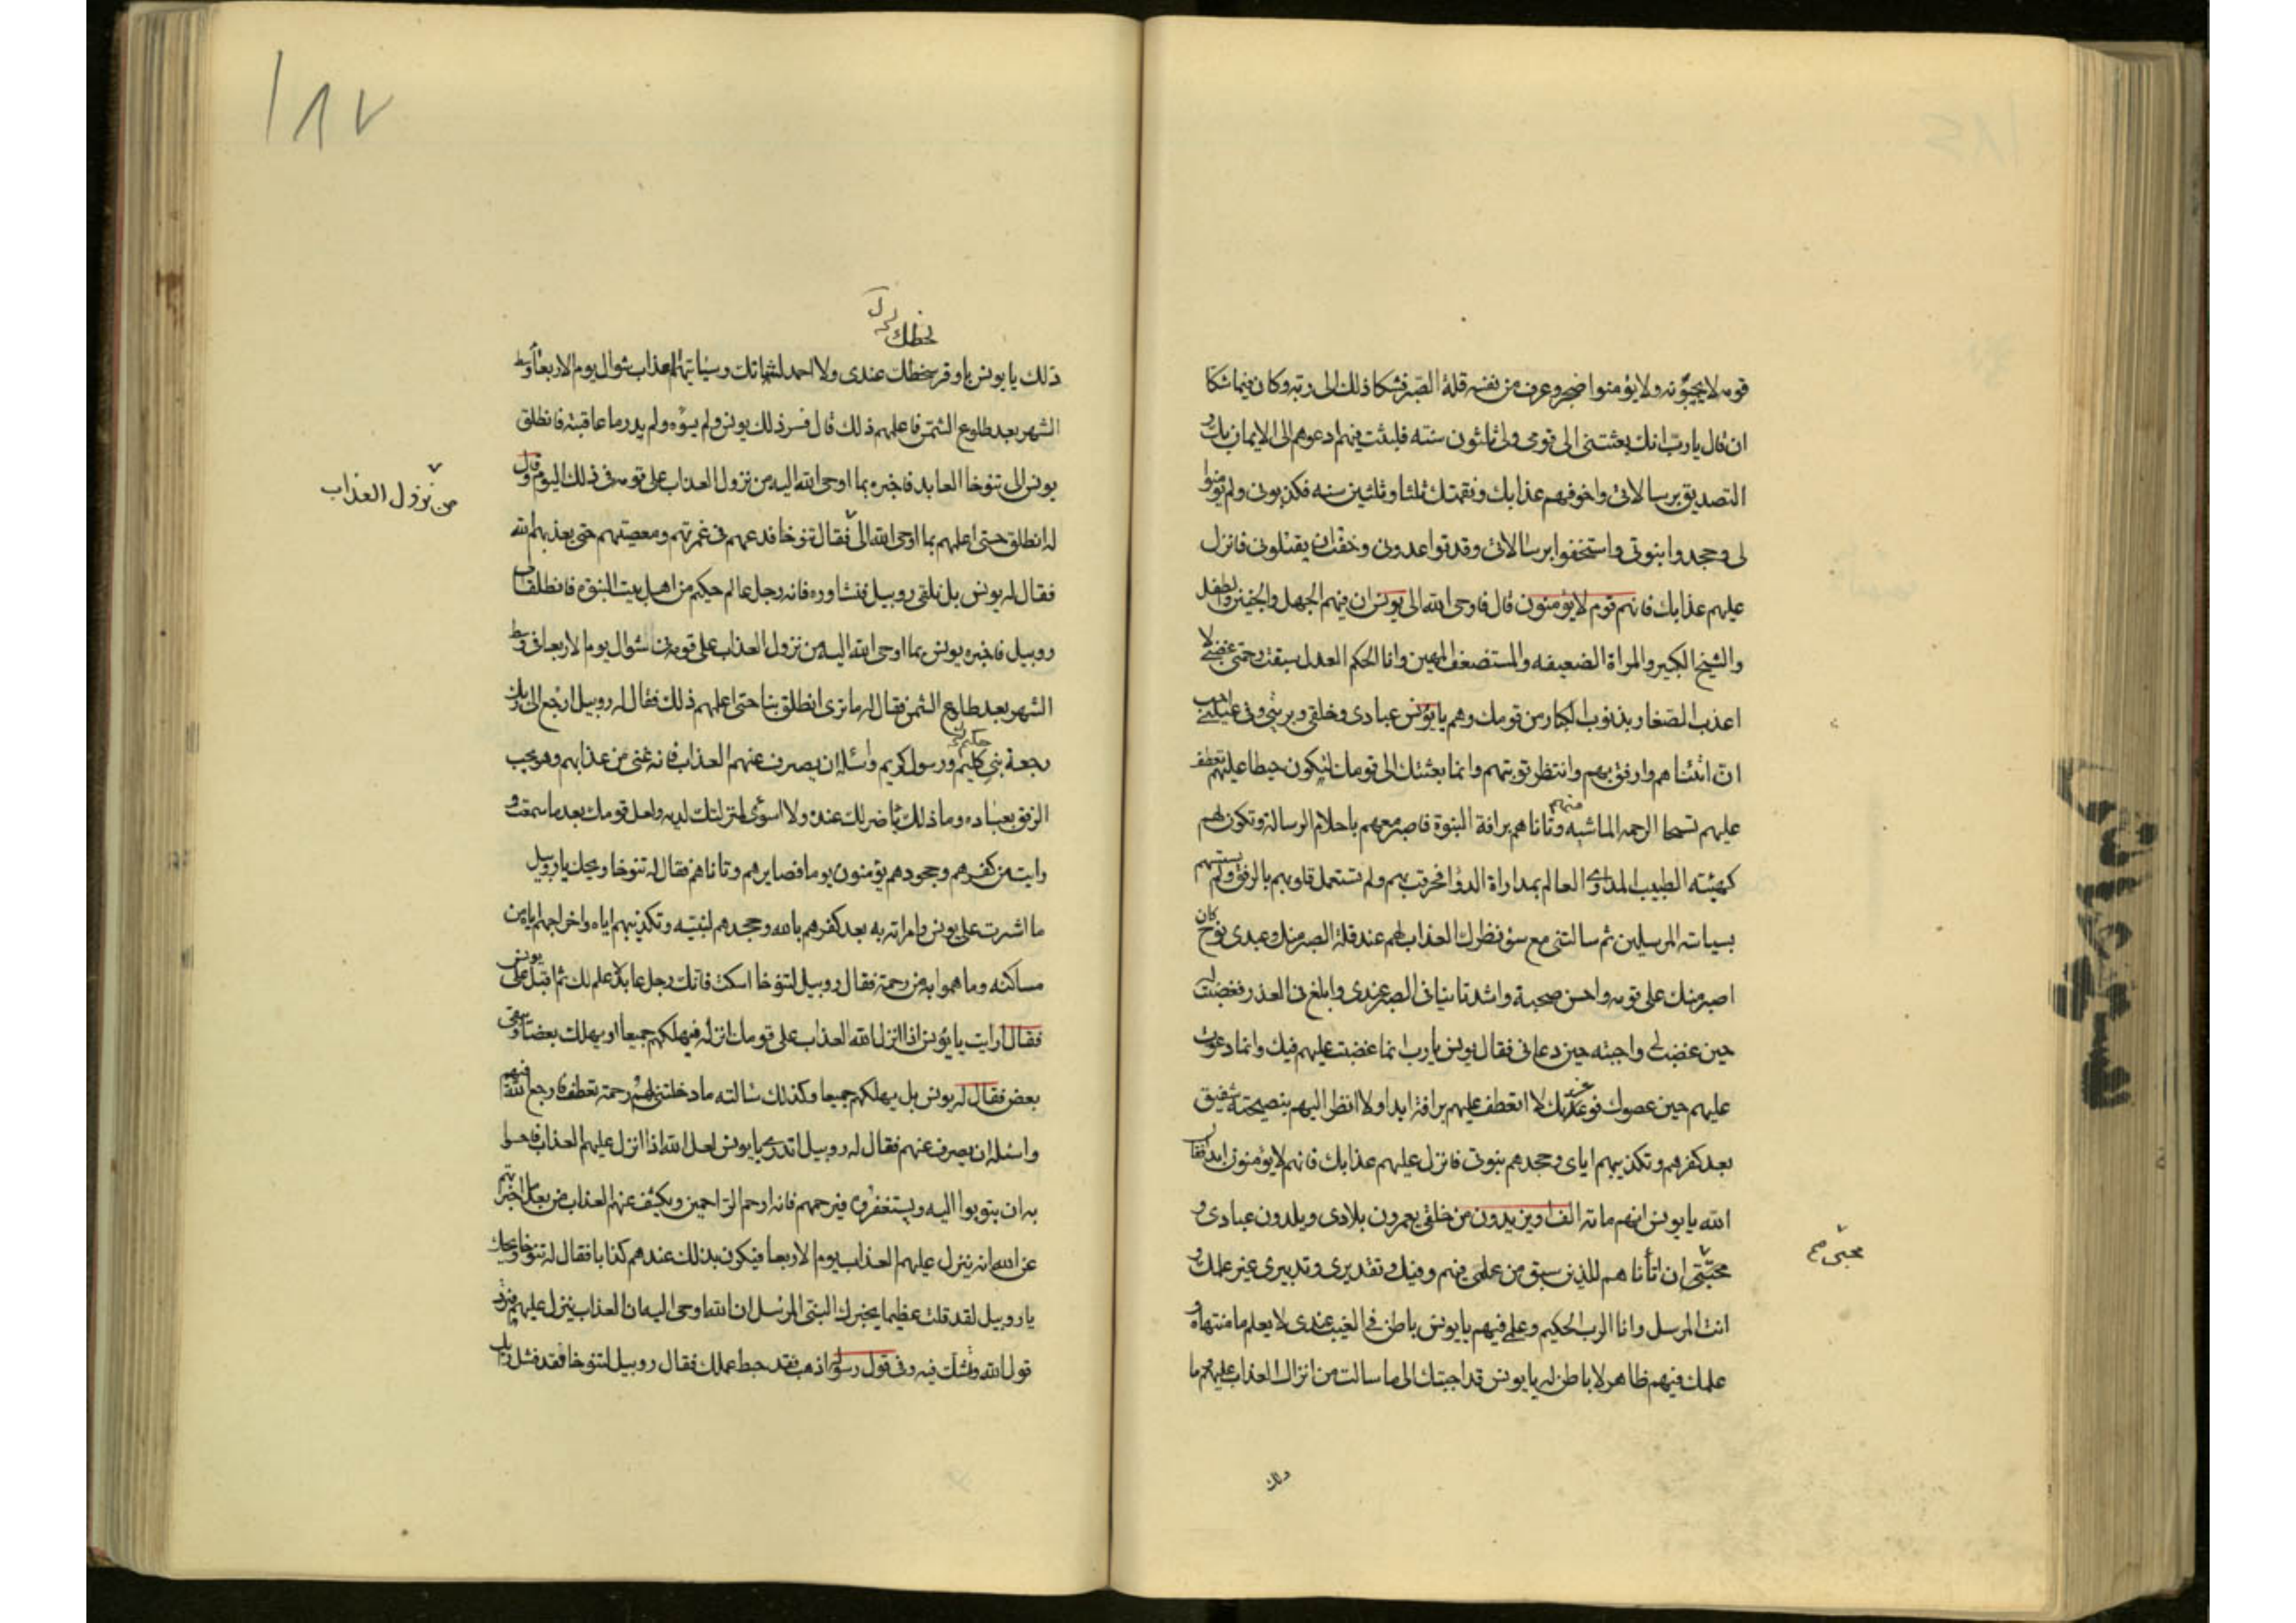 قومه لا يجيبونه ولا يؤمنوا ضجر وعرف من نفسه قلة الصبر فشكا ذلك الى ربه وكان فيما شكا
ان قال يا رب انك بعثتنى الى قومى ولى ثلثون سنته فلبثت فيهم ادعوهم الى الايمان بك و
التصديق برسالاتى واخوفهم عذابك ونقمتك ثلثا وثلثين سنه فكذبونى ولم يؤمنوا
لى وجحدوا بنوتى واستخفوا برسالاتى وقد تواعدونى وخفت ان يقتلونى فانزل
عليهم عذابك فانهم قوم لا يؤمنون قال فاوحى الله الى يونس ان فيهم الجهل والجنين والطفل
والشيخ الكبير والمراة الضعيفه والمستضعف المهين وانا الحكم العدل سبقت رحمتى غضبى لا
اعذب الصغار بذنوب الكبار من قومك وهم يا يونس عبادى وخلقى وبريتى فى عيلتى احب
ان اتاناهم وارفق بهم وانتظر توبتهم وانما بعثتك الى قومك لتكون حيطا عليهم تعطف
عليهم تسحا الرحمه الماشبه منهم وتاناهم برافة النبوة فاصبر معهم باحلام الرسالة وتكون لهم
كهيئته الطبيب المداوى العالم بمداراة الدوا فخرقت بهم ولم تستعمل قلوبهم بالرفق ولم تسسهم
بسياسته المرسلين ثم سالتنى مع سؤ نظرك العذاب لهم عند قلة الصبر منك وعبدى نوح كان
اصبر منك على قومه واحسن صحبة واشد تانيا فى الصبر عندى وابلغ فى العذر فغضبت له
حين غضب لى واجبته حين دعانى فقال يونس يا رب انما غضبت عليهم فيك وانما دعوت
عليهم حين عصوك فوعزتك لا اتعطف عليهم برافة ابدا ولا انظر اليهم بنصيحة شفيق
بعد كفرهم وتكذيبهم اياى وجحدهم بنوتى فانزل عليهم عذابك فانهم لا يؤمنون ابدا فقال
الله يا يونس انهم مائة الف او يزيدون من خلقى يعمرون بلادى ويلدون عبادى و
محبتى ان اتأناهم للذى سبق من علمى فيهم وفيك وتقديرى وتدبيرى غير علمك و
محبتى صح
انت المرسل وانا الرب الحكيم وعلمى فيهم يا يونس باطن فى الغيب عندى لا يعلم ما منتهاه و
علمك فيهم ظاهر لا باطن له يا يونس قد اجبتك الى ما سالت من انزال العذاب عليهم ما
ذلك
١٨٧
لحظك
ذلك يا يونس باوفر لحظك عندى ولا احمد لشانك وسياتيهم العذاب شوال يوم الاربعا وسط
الشهر بعد طلوع الشمس فاعلمهم ذلك قال فسر ذلك يونس ولم يسؤه ولم يدر ما عاقبته فانطلق
يونس الى تنوخا العابد فاخبره بما اوحى الله اليه من نزول العذاب على قومه فى ذلك اليوم وقال
من نزول العذاب
له انطلق حتى اعلمهم بما اوحى الله الى فقال تنوخا فدعهم فى غمرتهم ومعصيتهم حتى يعذبهم الله
فقال له يونس بل نلقى روبيل فنشاوره فانه رجل عالم حكيم من اهل بيت النبوة فانطلقا الى
روبيل فاخبره يونس بما اوحى الله اليه من نزول العذاب على قومه فى شوال يوم الاربعا فى وسط
الشهر بعد طلوع الشمس فقال له ما ترى انطلق بنا حتى اعلمهم ذلك فقال له روبيل ارجع الى ربك
رجعة نبى حكيم ورسول كريم واسئله ان يصرف عنهم العذاب فانه غنى من عذابهم وهو يحب
الرفق بعباده وما ذلك باضر لك عنده ولا اسوئى لمنزلتك لديه ولعل قومك بعد ما سمعت و
رايت من كفرهم وجحودهم يؤمنون يوما فصابرهم وتاناهم فقال له تنوخا ويحك يا روبيل
ما اشرت على يونس وامرته به بعد كفرهم بالله وجحدهم لنبيه وتكذيبهم اياه واخراجهم اياه من
مساكنه وما هموا به من رجمه فقال روبيل لتنوخا اسكت فانك رجل عابد لا علم لك ثم اقبل على يونس
فقال ارايت يا يونس اذا انزل الله العذاب على قومك انزله فيهلكهم جميعا او يهلك بعضا ويبقى
بعض فقال له يونس بل يهلكهم جميعا وكذلك سالته ما دخلتنى لهم رحمة تعطف فارجع الله فيهم
واسئله ان يصرف عنهم فقال له روبيل اتدرى يا يونس لعل الله اذا انزل عليهم العذاب فاحسوا
به ان يتوبوا اليه ويستغفروه فيرحمهم فانه ارحم الراحمين ويكشف عنهم العذاب من بعد ما اخبرتهم
عن الله انه ينزل عليهم العذاب يوم الاربعا فيكون بذلك عندهم كذابا فقال له تنوخا ويحك
يا روبيل لقد قلت عظيما يخبرك النبى المرسل ان الله اوحى اليه ان العذاب ينزل عليهم فترد
قول الله وتشك فيه وفى قول رسوله اذهب فقد حبط عملك فقال روبيل لتنوخا فقد فشل رايك